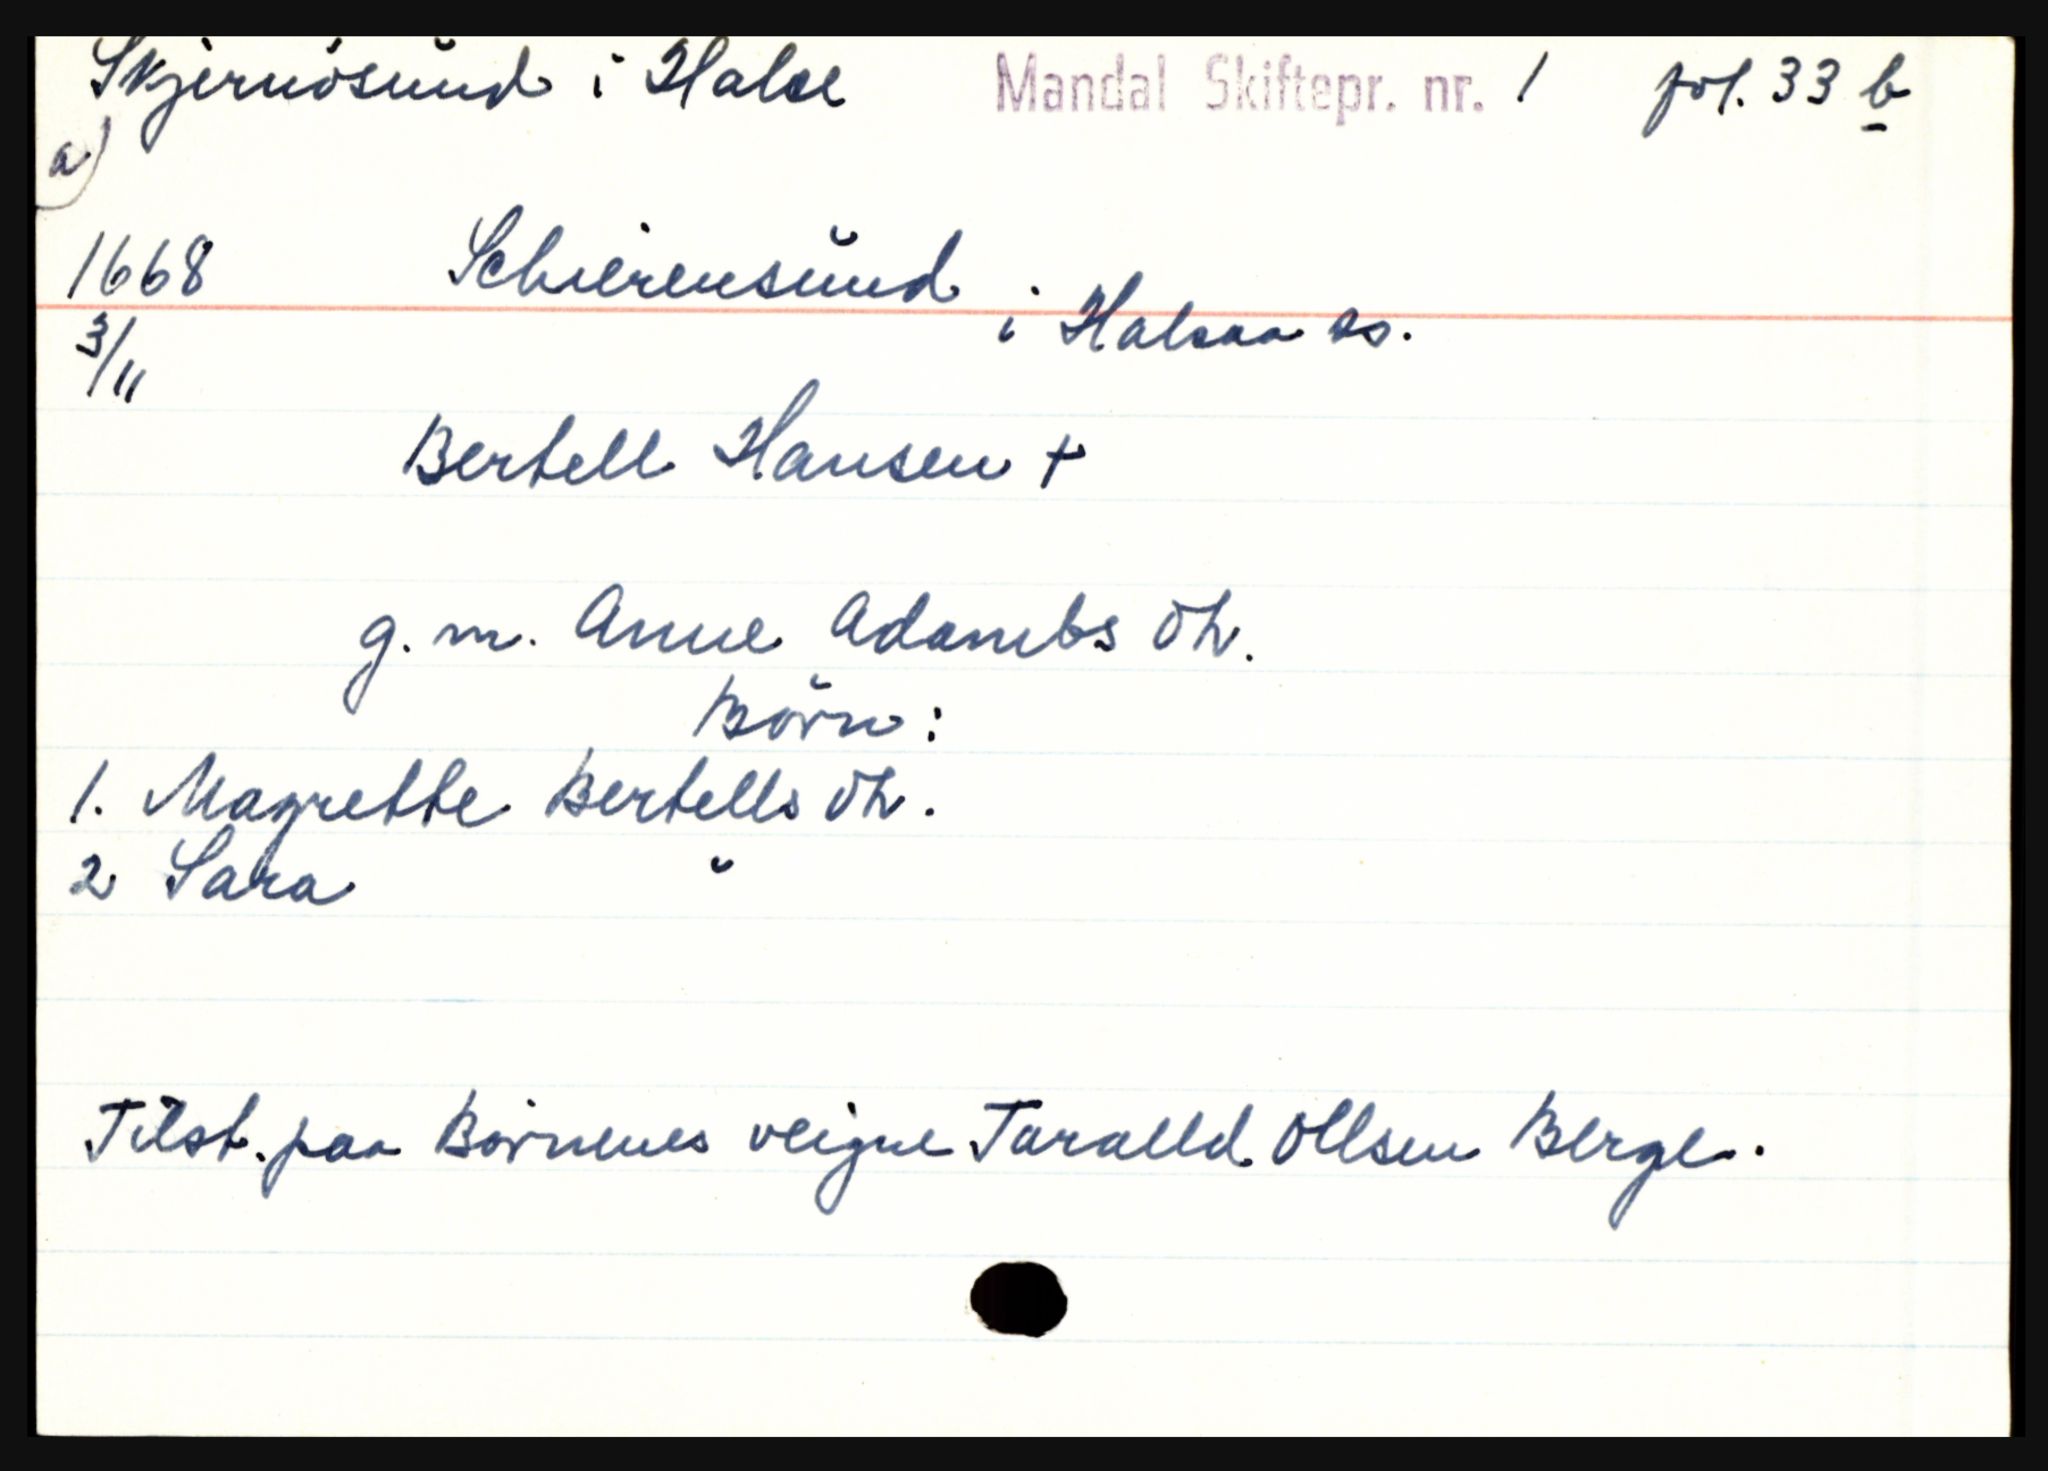 Skjernösund i Halse Mandal Skiftepr. nr. 1 fol. 33 b
a)
1668 Schierensund
3/11 i Halsaa ss.
Bertell Hansen +
g. m. Anne Adambs dtr.
Börn :
1. Magrette Bertells dtr.
2 Sara "
Tilst. paa Börnenes veigne Taralld Ollsen Berge.